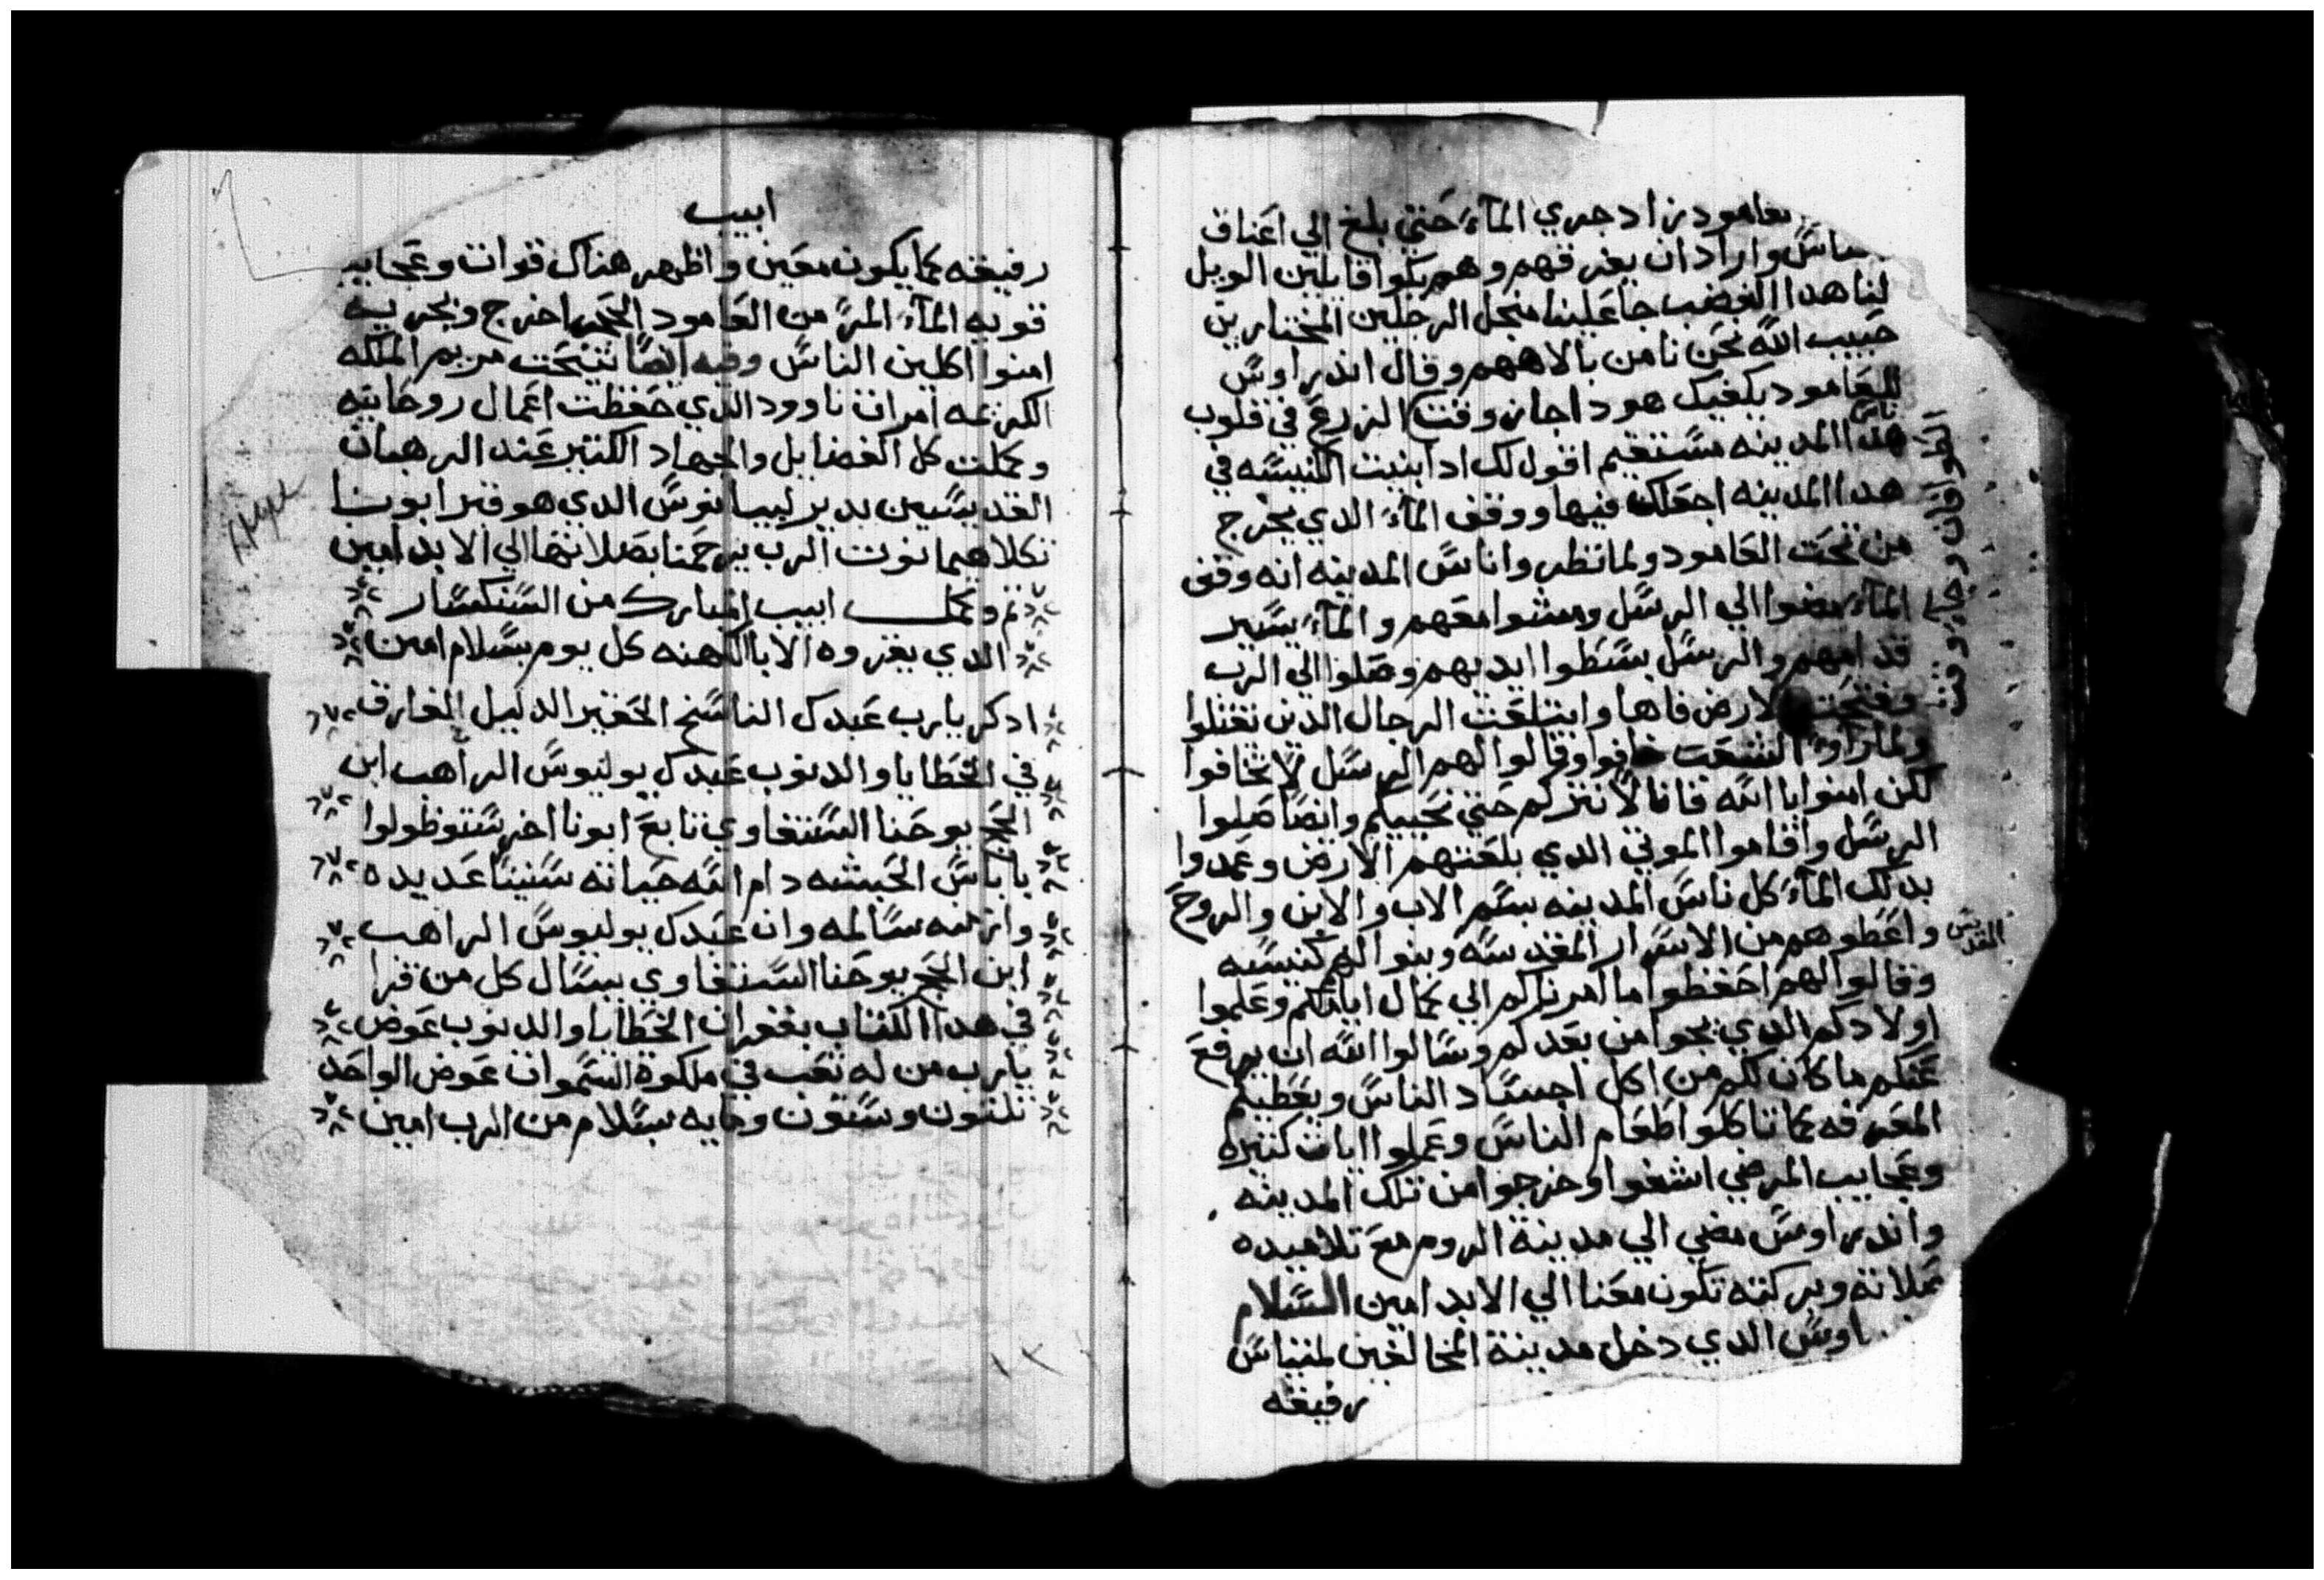 العامود زاد جري المآء حتي بلغ الي اعناق
الناس واراد ان يغرقهم وهم بكوا قايلين الويل
لنا هدا الغضب جا علينا منجل الرجلين المختارين
حبيب الله نحن نامن بالاههم وقال اندراوس
للعامود يكفيك هودا جا زوقت الزرع في قلوب
ناس
هدا المدينه ستقيم اقول لك ادا بنيت الكنيسه في
هدا المدينه اجعلك فيها ووقف المآء الدي يخرج
من تحت العامود ولما نظروا ناس المدينه انه وقف
المآء مضوا الي الرسل ومشوا معهم والمآء يسير
قدامهم والرسل بسطوا ايديهم وصلوا الي الرب
وفتحت الارض فاها وابتلعت الرجال الدين
ولما راوا الشعب خافوا وقالوا لهم الرسل لا تخافوا
لكن امنوا بالله فانا لا نترككم حتي نحييكم وايضا صلوا
الرسل واقاموا الموتي الدي بلعتهم الارض وعمدوا
بدلك المآء كل ناس المدينه بسم الاب والابن والروح
القدس
واعطوهم من الاسرار المقدسه وبنوا لهم كنيسه
وقالوا لهم احفظوا ما امرناكم الي كمال ايامكم وعلموا
اولادكم الدي يجوا من بعدكم وسالوا الله ان يرفع
عنكم ما كان لكم من اكل اجساد الناس ويعطيكم
المعرفه كما تاكلوا طعام الناس وعملوا ايات كتيره
وعجايب المرضي اشفوا وخرجوا من تلك المدينه
واندراوس مضي الي مدينة الروم مع تلاميده
صلاته وبركته تكون معنا الي الابد امين السلام
اوس الدي دخل مدينة المخالفين لمتياس
رفيقه
ابيب
رفيقه كما يكون معين واظهر هناك قوات وعجايب
قويه المآء المر من العامود الحجر اخرج وبجريه
امنوا اكلين الناس وفيه ايضا تنيحت مريم الملكه
الكر امرات ناوود الدي حفظت اعمال روحانيه
وكملت كل الفضايل والجهاد الكتير عند الرهبان
القديسين بدير ليبانوس الدي هو قبر ابونا
تكلاهيمانوت الرب يرحمنا بصلاتها الي الابد امين
تم وكمل ابيب المبارك من السنكسار
الدي يقروه الابا الكهنه كل يوم بسلام امين
ادكر يارب عبدك الناسخ الحقير الدليل الغارق
في الخطايا والدنوب عبدك بوليوس الراهب ابن
الحج يوحنا السنقاوي تابع ابونا اخرسطوظولوا
باباس الحبشه دام الله حياته سنينا عديده
وازمنه سالمه وان عبدك بوليوس الراهب
ابن الحج يوحنا السنقاوي يسال كل من قرا
في هدا الكتاب بغفران الخطايا والدنوب عوض
يارب من له تعب في ملكوة السموات عوض الواحد
تلتون وستون ومايه بسلام من الرب امين